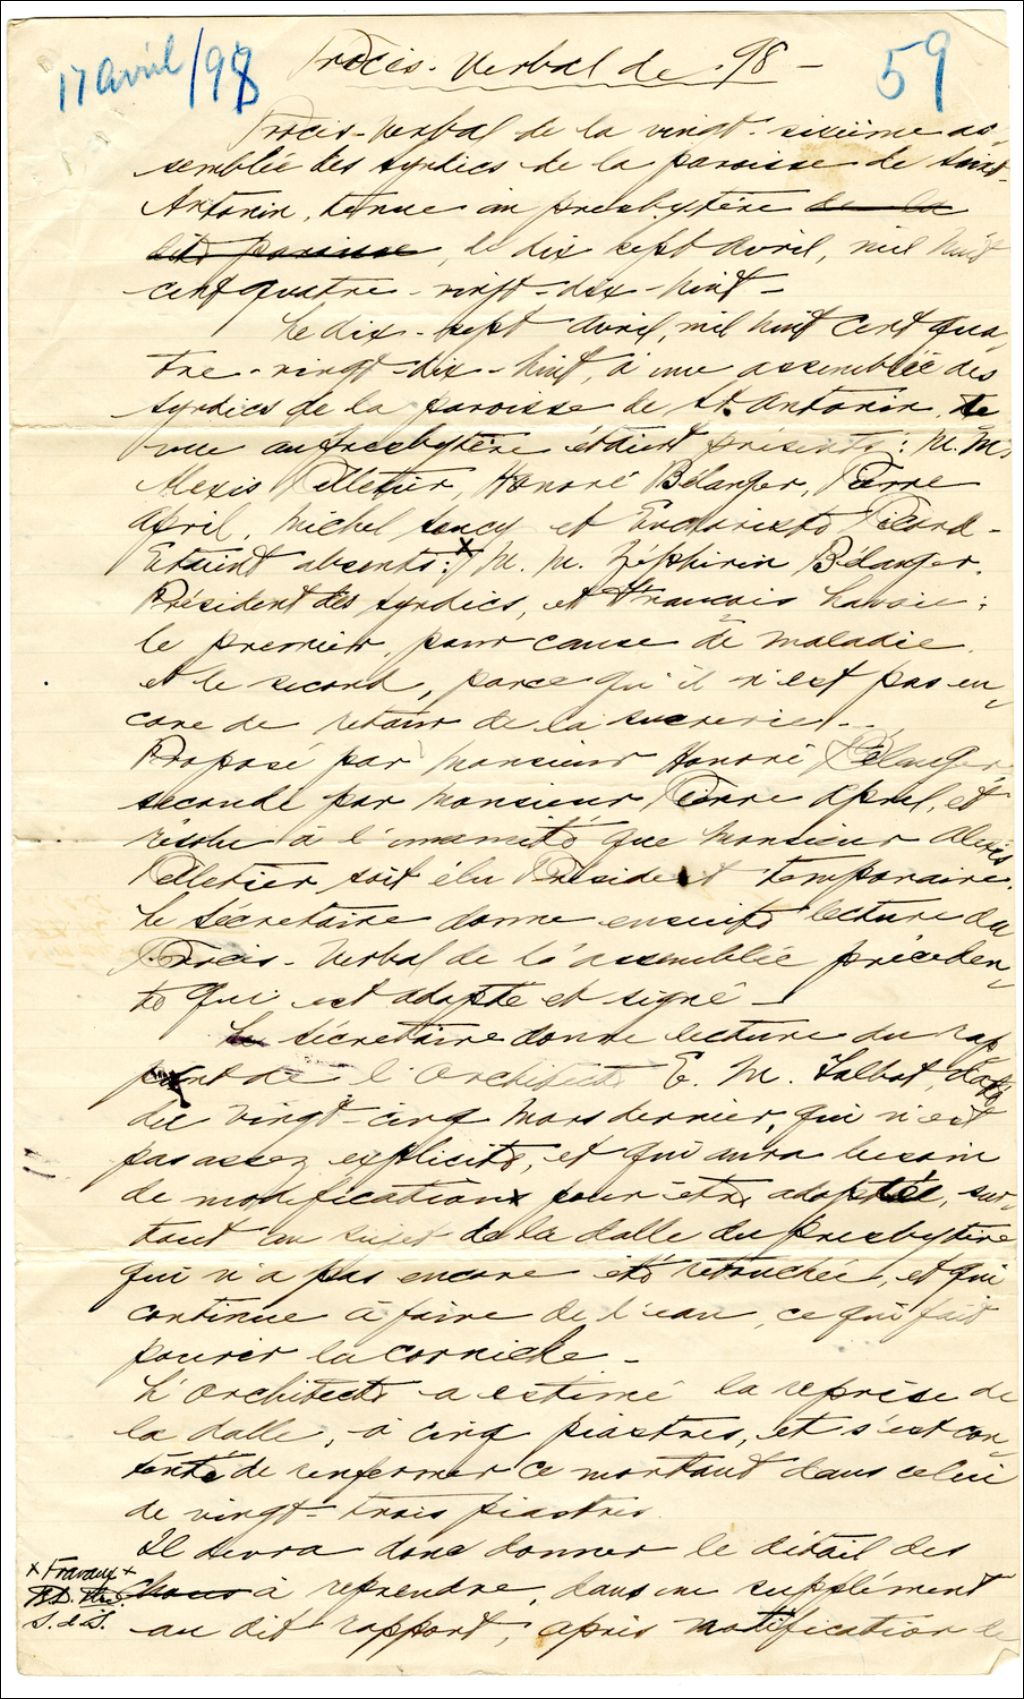 17 avril/98
Procès-Verbal de 98 -
59
Procès-Verbal de la vingt-sixième as
semblée des syndics de la paroisse de Saint-
Antonin, tenue au presbytère de la
dite paroisse, le dix sept avril, mil huit
cent quatre-vingt-dix-huit-
Le dix-sept avril, mil huit cent qua
tre-vingt-dix-huit, à une assemblée des
syndics de la paroisse de St. Antonin, te
nue au presbytère étaient présents: M.M.
Alexis Pelletier, Honoré Bélanger, Pierre
April, Michel et Picard-
Etaient absents: x M. M. Zéphirin Bélanger,
Président des syndics, et François Lavoie;
le premier, pour cause de maladie,
et le second, parce qu'il n'est pas en-
core de retour de la sucrerie.-
Proposé par Monsieur Honoré Bélanger,
secondé par Monsieur Pierre April, et
résolu à l'unanimité que Monsieur Alexis
Pelletier, soit élu Président temporaire.
Le sécretaire donne ensuite lecture du
Procès-Verbal de l'assemblée précéden-
te qui est adopté et signé-
Le sécretaire donne lecture du rap
port de l'Architecte E. M. Talbot, daté
du vingt-cinq Mars dernier, qui n'est
pas assez explicite, et qui aura besoin
de modifications pour être adopté, sur-
tout au sujet de la dalle du presbytère
qui n'a pas encore été retouchée, et qui
continue à faire de l'eau, ce qui fait
pourrir la corniche-
L'Architecte a estimé la reprise de
la dalle, à cinq piastres, et s'est con-
tenté de renfermer ce montant dans celui
de vingt-trois piastres.
Il devra donc donner le détail des
x Travaux x
choses à reprendre, dans un supplément
S. & S.
au dit rapport, après notification de